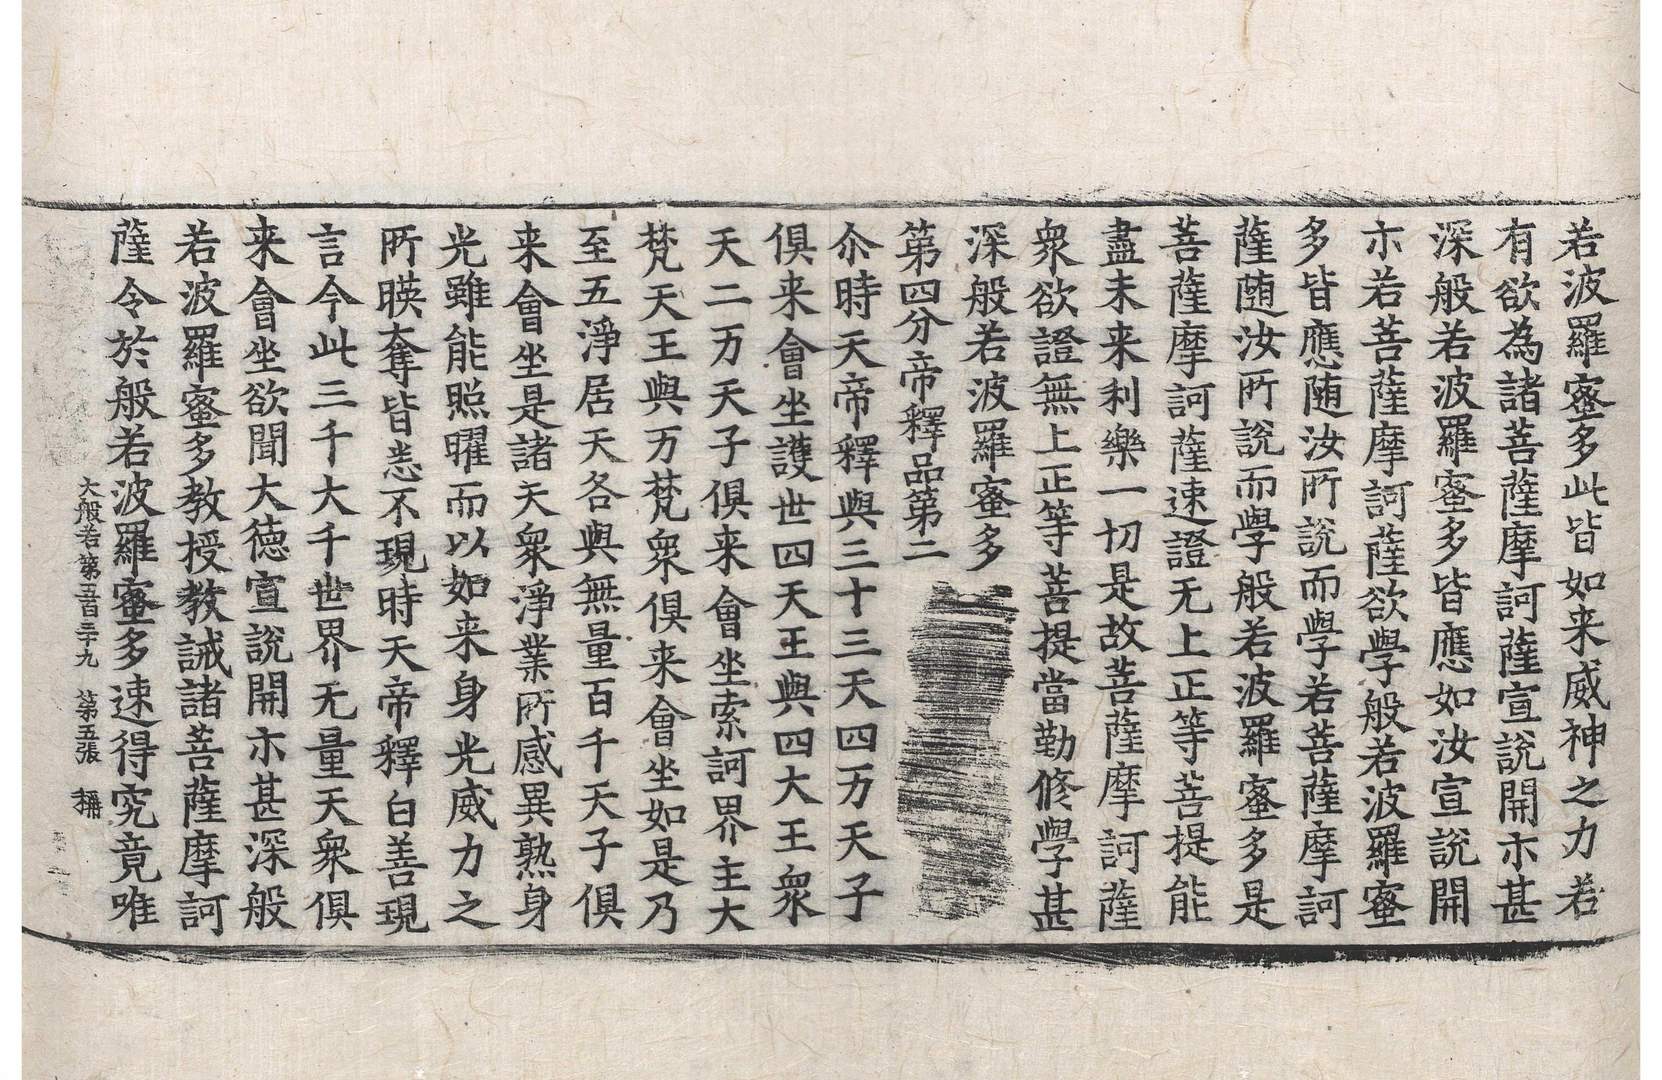 若波羅蜜多此皆如来威神之力若
有欲為諸菩薩摩訶薩宣說開示甚
深般若波羅蜜多皆應如汝宣說開
示若菩薩摩訶薩欲學般若波羅蜜
多皆應随汝所說而學若菩薩摩訶
薩随汝所說而學般若波羅蜜多是
菩薩摩訶薩速證无上正等菩提能
盡未来利樂一切是故菩薩摩訶薩
衆欲證無上正等菩提當勤修學甚
深般若波羅蜜多
第四分帝釋品第二
尒時天帝釋與三十三天四万天子
俱来會坐護世四天王與四大王衆
天二万天子俱来會坐索訶界主大
梵天王與万梵衆俱来會坐如是乃
至五淨居天各與無量百千天子俱
来會坐是諸天衆淨業所感異熟身
光雖能照曜而以如来身光威力之
所暎奪皆悉不現時天帝釋白善現
言今此三千大千世界无量天衆俱
来會坐欲聞大德宣說開示甚深般
若波羅蜜多教授教誡諸菩薩摩訶
薩令於般若波羅蜜多速得究竟唯
大般若第五百三十九 第五張